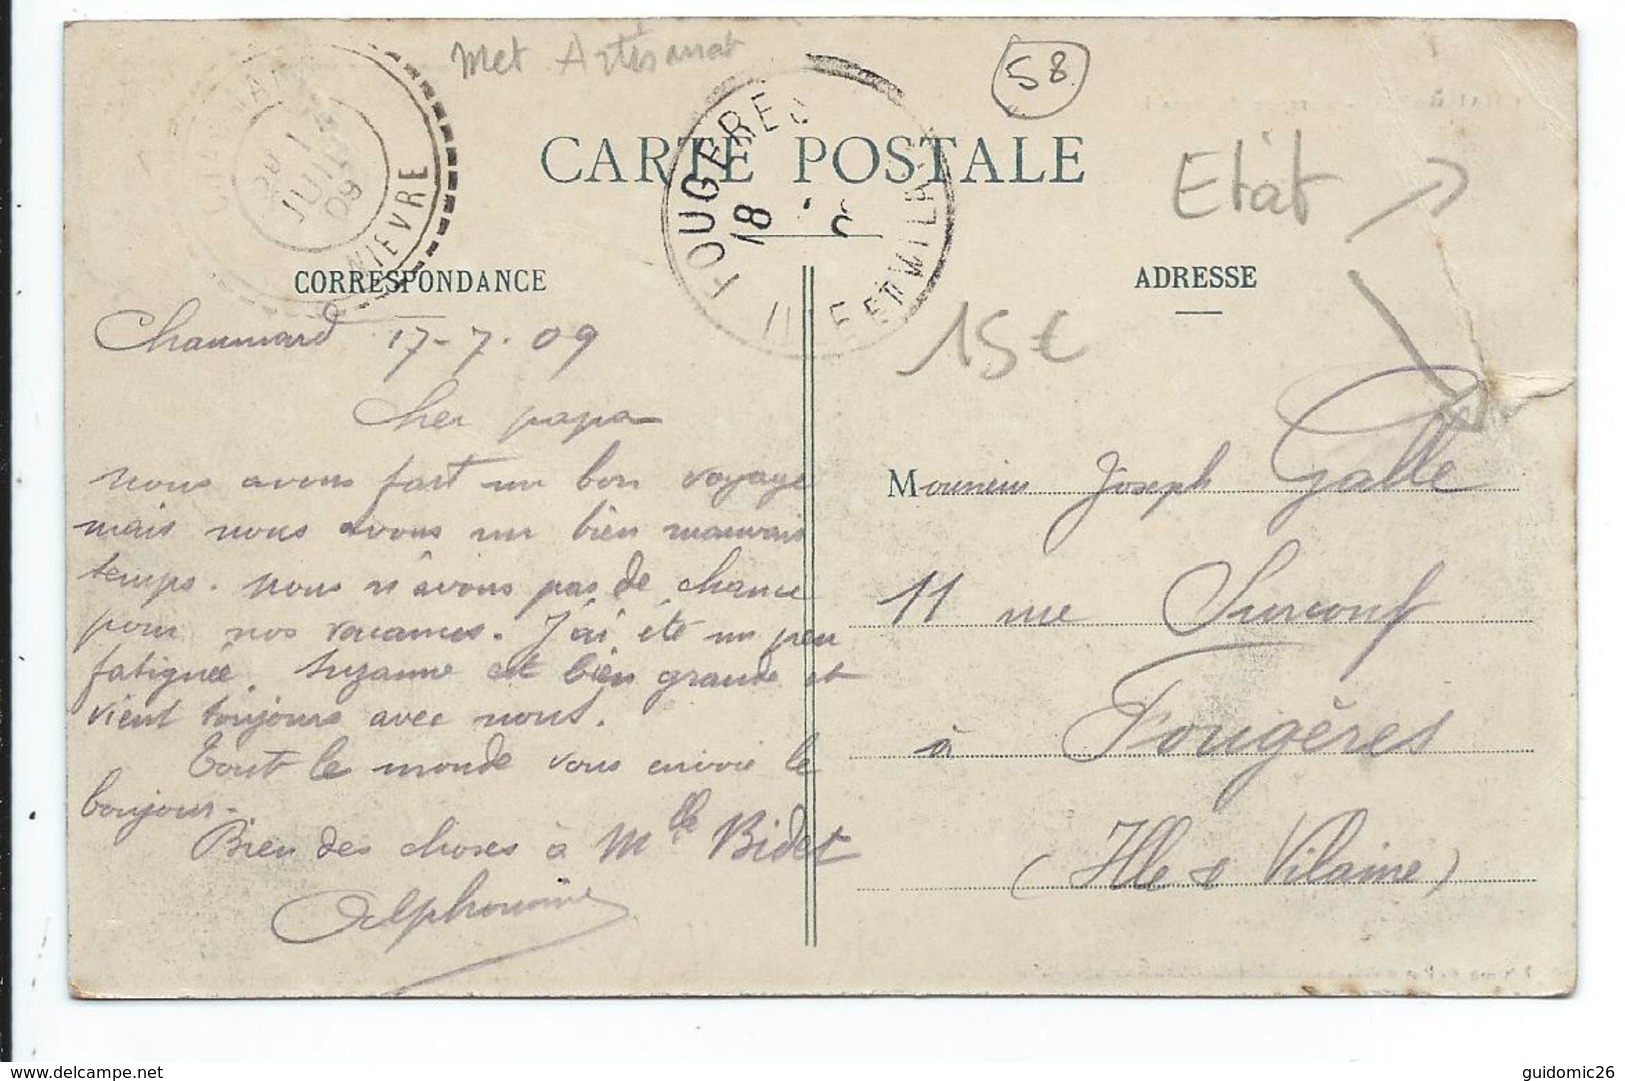 Met Artisanat
58
CARTE POSTALE
Etat
FOUGERES
18
ILLE ET VILAINE
NIEVRE
JUIL
09
CORRESPONDANCE
ADRESSE
15€
Chaumard 17-7-09
Cher papa
nous avons fait un bon voyage
mais nous avons un bien mauvais
temps. nous n'avons pas de chance
pour nos vacances. J'ai été un peu
fatiguée. Suzanne est bien grande et
vient toujours avec nous.
Tout le monde vous envoie le
bonjour.
Bien des choses à Mlle Bidet
Alphonsine
Monsieur Joseph Galle
11 rue Surcouf
à Fougères
(Ille & Vilaine)
www.delcampe.net
guidomic26